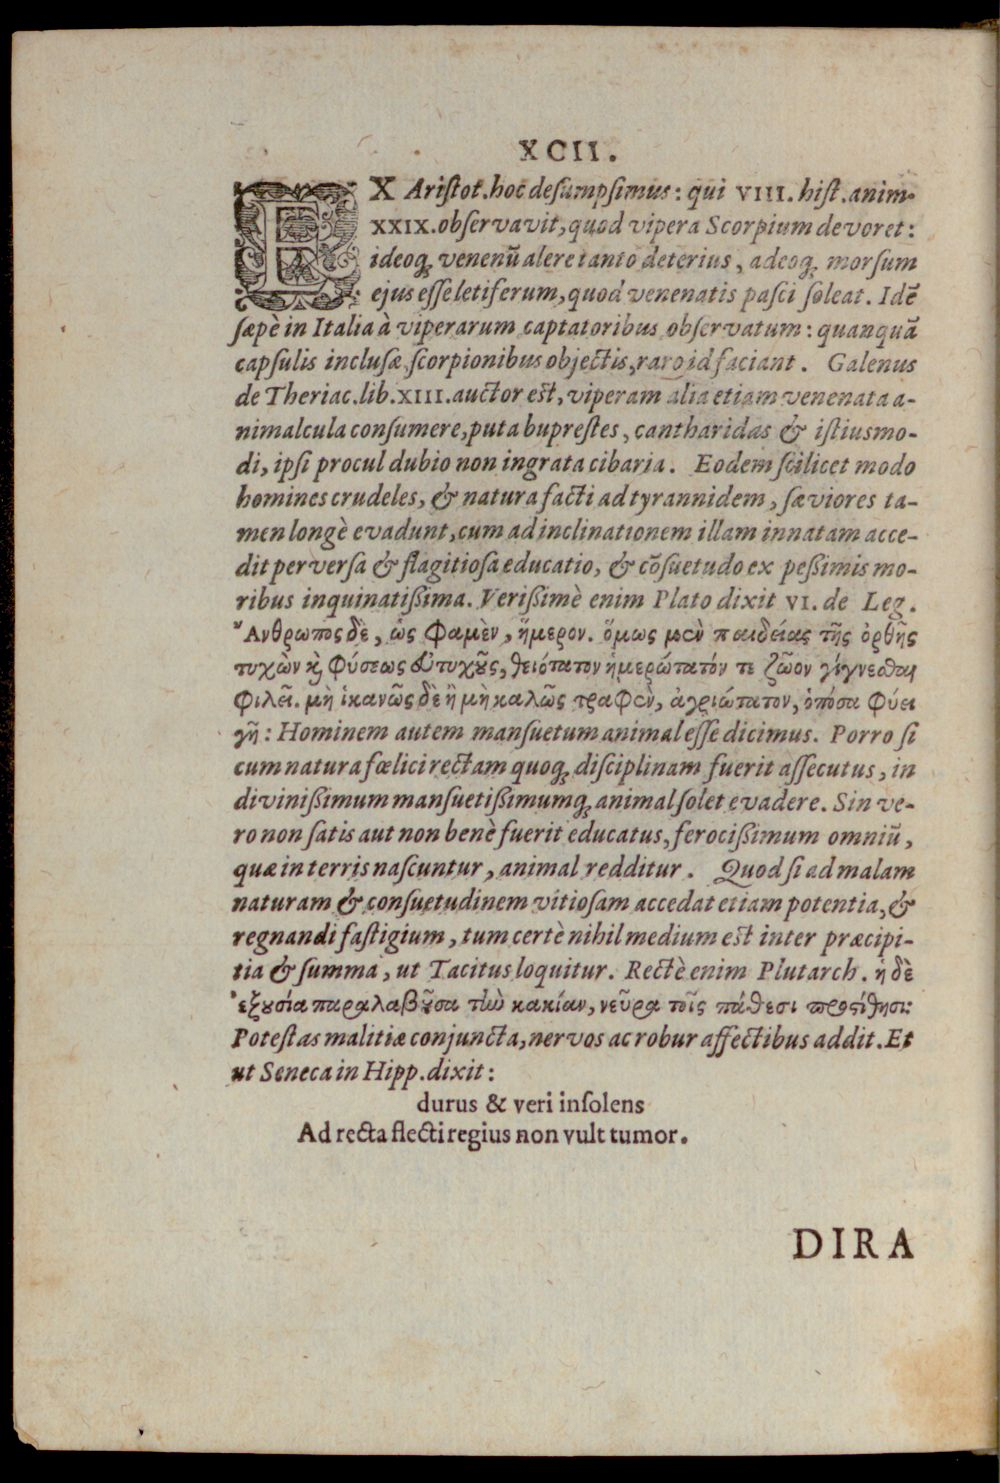 XCII.
EX Aristot. hoc desumpsimus: qui VIII. hist. anim.
XXIX. observavit, quod vipera Scorpium devoret:
ideoq; venenū alere tanto deterius, adeoq; morsum
ejus esse letiferum, quod venenatis pasci soleat. Idē
sæpè in Italia à viperarum captatoribus observatum: quanquā
capsulis inclusæ, scorpionibus objectis, raro id faciant. Galenus
de Theriac. lib. XIII. auctor est, viperam alia etiam venenata a-
nimalcula consumere, puta buprestes, cantharidas & istiusmo-
di, ipsi procul dubio non ingrata cibaria. Eodem scilicet modo
homines crudeles, & natura facti ad tyrannidem, sæviores ta-
men longè evadunt, cum ad inclinationem illam innatam acce-
dit perversa & flagitiosa educatio, & cōsuetudo ex pessimis mo-
ribus inquinatissima. Verissimè enim Plato dixit VI. de Leg.
Ἄνθρωπος δὲ, ὡς φαμὲν, ἥμερον. ὅμως μὲν παιδείας τῆς ὀρθῆς
τυχὼν καὶ φύσεως εὐτυχοῦς, θειότατον ἡμερώτατόν τε ζῶον γίγνεσθαι
φιλεῖ. μὴ ἱκανῶς δὲ ἢ μὴ καλῶς τραφὲν, ἀγριώτατον, ὁπόσα φύει
γῆ: Hominem autem mansuetum animal esse dicimus. Porro si
cum natura fœlici rectam quoq; disciplinam fuerit assecutus, in
divinissimum mansuetissimumq; animal solet evadere. Sin ve-
ro non satis aut non benè fuerit educatus, ferocissimum omniū,
quæ in terris nascuntur, animal redditur. Quod si ad malam
naturam & consuetudinem vitiosam accedat etiam potentia, &
regnandi fastigium, tum certè nihil medium est inter præcipi-
tia & summa, ut Tacitus loquitur. Rectè enim Plutarch. ἡ δὲ
ἐξουσία παραλαβοῦσα τὴν κακίαν, νεῦρα τοῖς πάθεσι προστίθησι:
Potestas malitiæ conjuncta, nervos ac robur affectibus addit. Et
ut Seneca in Hipp. dixit:
durus & veri insolens
Ad recta flecti regius non vult tumor.
DIRA